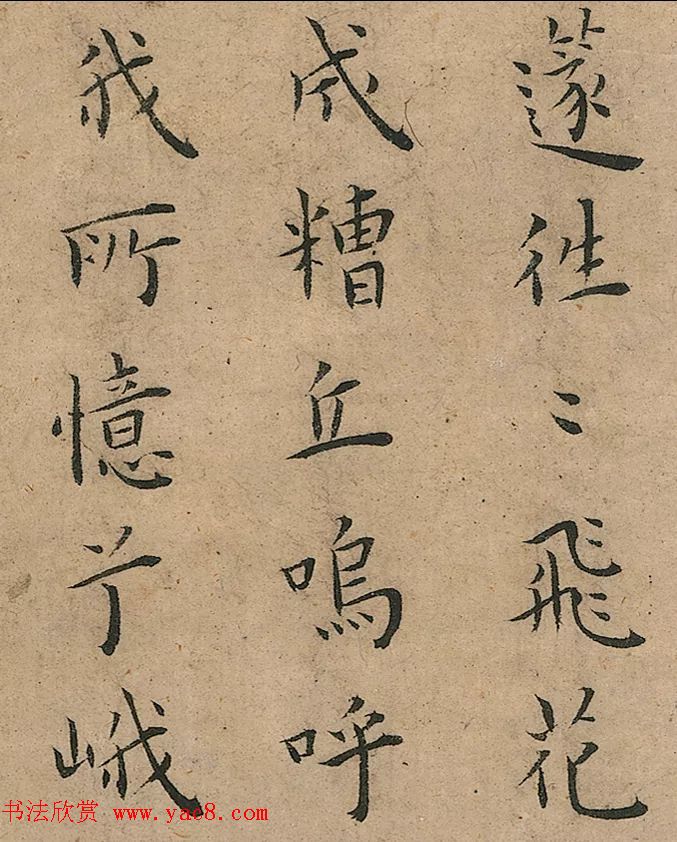 篴徃〻飛花
成糟丘嗚呼
我所憶兮峨
书法欣赏 www.yac8.com